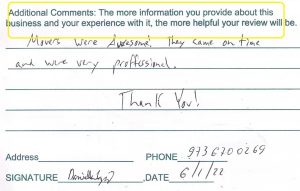 Additional Comments: The more information you provide about this
business and your experience with it, the more helpful your review will be.
Movers were Awesome! They came on time
and were very proffessional.
Thank You!
Address PHONE 9736700269
SIGNATURE DATE 6/1/22